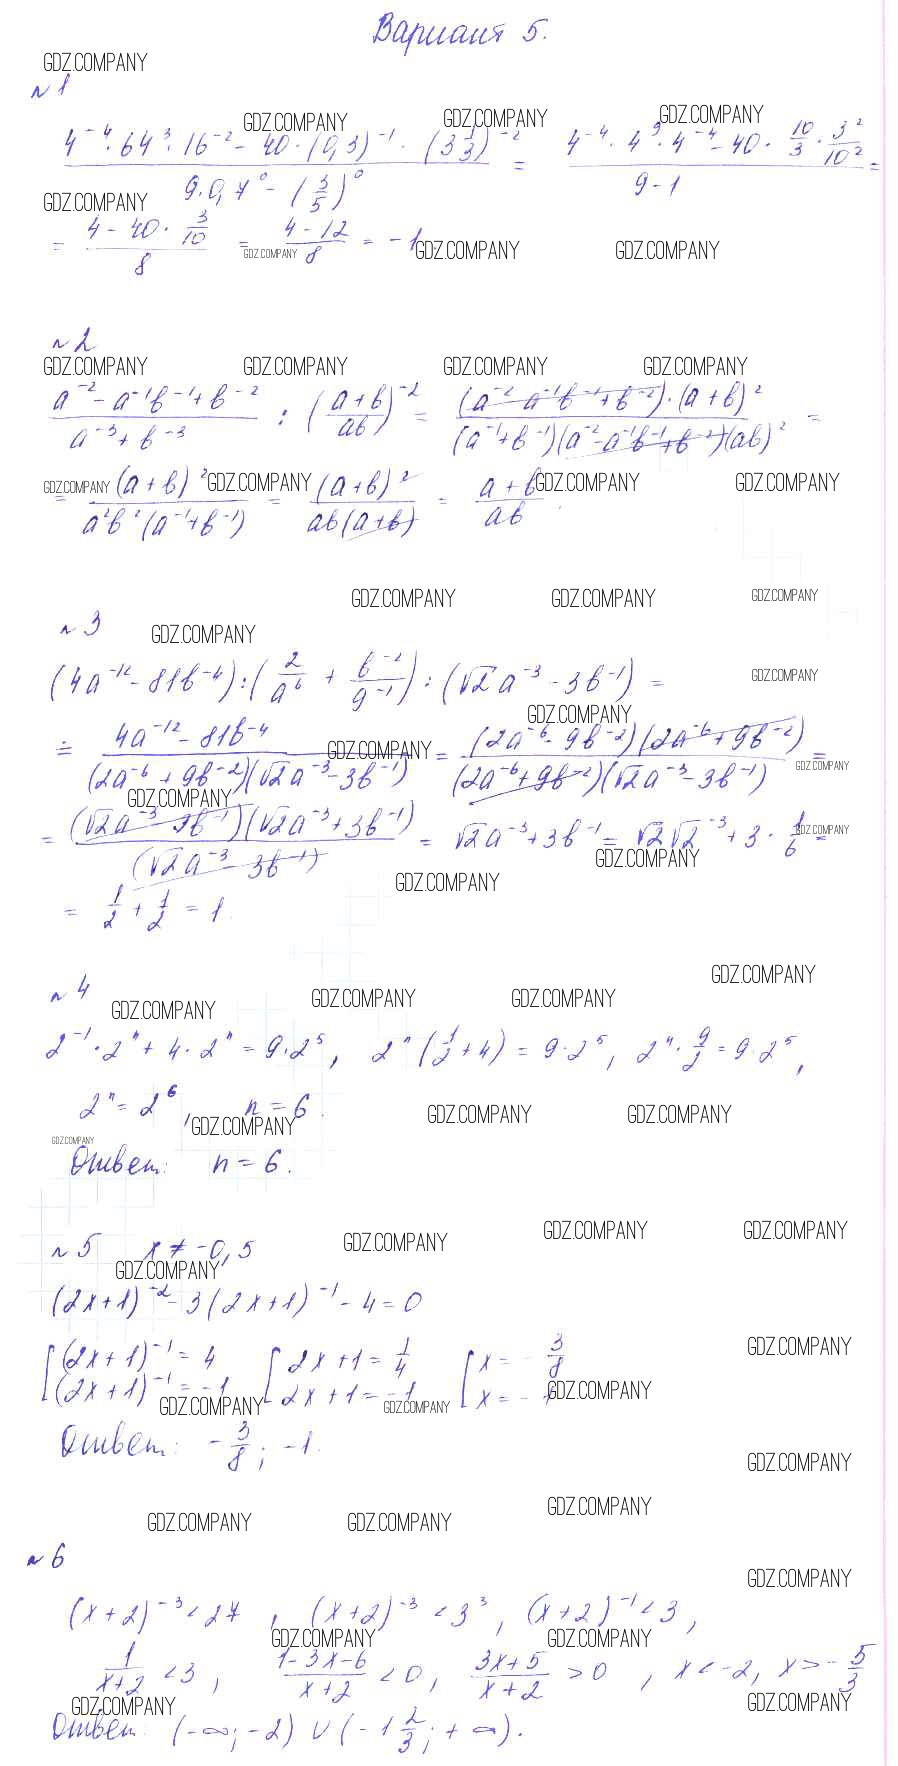 Вариант 5.
GDZ.COMPANY
№1
GDZ.COMPANY GDZ.COMPANY GDZ.COMPANY
(4⁻⁴ · 64³ · 16⁻² - 40 · (0,3)⁻¹ · (3 1/3)⁻²) / (9 · 0,7⁰ - (3/5)⁰) = (4⁻⁴ · 4⁹ · 4⁻⁴ - 40 · 10/3 · 3²/10²) / (9 - 1) =
GDZ.COMPANY
= (4 - 40 · 3/10) / 8 = (4 - 12) / 8 = -1
GDZ.COMPANY GDZ.COMPANY GDZ.COMPANY
№2
GDZ.COMPANY GDZ.COMPANY GDZ.COMPANY GDZ.COMPANY
(a⁻² - a⁻¹b⁻¹ + b⁻²) / (a⁻³ + b⁻³) : ((a + b) / ab)⁻² = ((a⁻² - a⁻¹b⁻¹ + b⁻²) · (a + b)²) / ((a⁻¹ + b⁻¹)(a⁻² - a⁻¹b⁻¹ + b⁻²)(ab)²) =
GDZ.COMPANY GDZ.COMPANY GDZ.COMPANY GDZ.COMPANY
= (a + b)² / (a²b²(a⁻¹ + b⁻¹)) = (a + b)² / (ab(a + b)) = (a + b) / ab.
GDZ.COMPANY GDZ.COMPANY GDZ.COMPANY
№3
GDZ.COMPANY
(4a⁻¹² - 81b⁻⁴) : (2/a⁶ + b⁻²/9⁻¹) : (√2a⁻³ - 3b⁻¹) =
GDZ.COMPANY
GDZ.COMPANY
= (4a⁻¹² - 81b⁻⁴) / ((2a⁻⁶ + 9b⁻²)(√2a⁻³ - 3b⁻¹)) = ((2a⁻⁶ - 9b⁻²)(2a⁻⁶ + 9b⁻²)) / ((2a⁻⁶ + 9b⁻²)(√2a⁻³ - 3b⁻¹)) =
GDZ.COMPANY GDZ.COMPANY
GDZ.COMPANY
= ((√2a⁻³ - 3b⁻¹)(√2a⁻³ + 3b⁻¹)) / (√2a⁻³ - 3b⁻¹) = √2a⁻³ + 3b⁻¹ = √2√2⁻³ + 3 · 1/6 =
GDZ.COMPANY GDZ.COMPANY
GDZ.COMPANY
= 1/2 + 1/2 = 1.
GDZ.COMPANY
№4
GDZ.COMPANY GDZ.COMPANY GDZ.COMPANY
2⁻¹ · 2ⁿ + 4 · 2ⁿ = 9 · 2⁵, 2ⁿ(1/2 + 4) = 9 · 2⁵, 2ⁿ · 9/2 = 9 · 2⁵,
2ⁿ = 2⁶, n = 6.
GDZ.COMPANY GDZ.COMPANY GDZ.COMPANY
GDZ.COMPANY
Ответ: n = 6.
GDZ.COMPANY GDZ.COMPANY
№5 x ≠ -0,5
GDZ.COMPANY
GDZ.COMPANY
(2x+1)⁻² - 3(2x+1)⁻¹ - 4 = 0
GDZ.COMPANY
[(2x+1)⁻¹ = 4 [2x+1 = 1/4 [x = -3/8
(2x+1)⁻¹ = -1 2x+1 = -1 x = -1
GDZ.COMPANY GDZ.COMPANY GDZ.COMPANY
Ответ: -3/8; -1.
GDZ.COMPANY
GDZ.COMPANY
GDZ.COMPANY GDZ.COMPANY
№6
GDZ.COMPANY
(x+2)⁻³ < 27, (x+2)⁻³ < 3³, (x+2)⁻¹ < 3,
GDZ.COMPANY GDZ.COMPANY
1/(x+2) < 3, (1-3x-6)/(x+2) < 0, (3x+5)/(x+2) > 0, x < -2, x > -5/3
GDZ.COMPANY GDZ.COMPANY
Ответ: (-∞; -2) ∪ (-1 2/3; +∞).